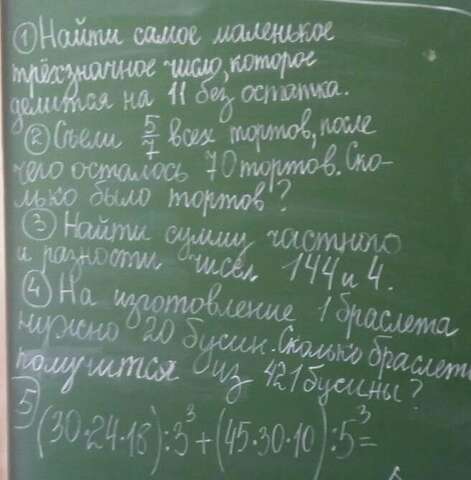 ① Найти самое маленькое
трёхзначное число, которое
делится на 11 без остатка.
② Съели 5/7 всех тортов, после
чего осталось 70 тортов. Ско-
лько было тортов?
③ Найти сумму частного
и разности чисел 144 и 4.
④ На изготовление 1 браслета
нужно 20 бусин. Сколько браслето
получится из 421 бусины?
⑤ (30·24·18):3³+(45·30·10):5³=